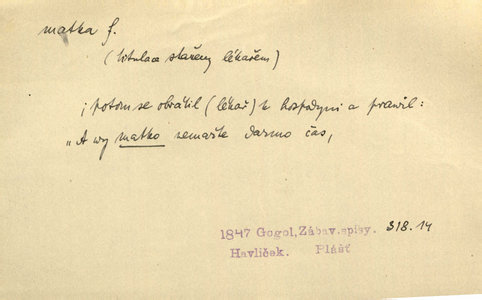 matka f.
(titulace stařeny lékařem)
; potom se obrátil (lékař) k hospodyni a pravil:
„A wy matko nemařte darmo čas,
1847 Gogol, Zábav.spisy. 318.14
Havlíček. Plášť